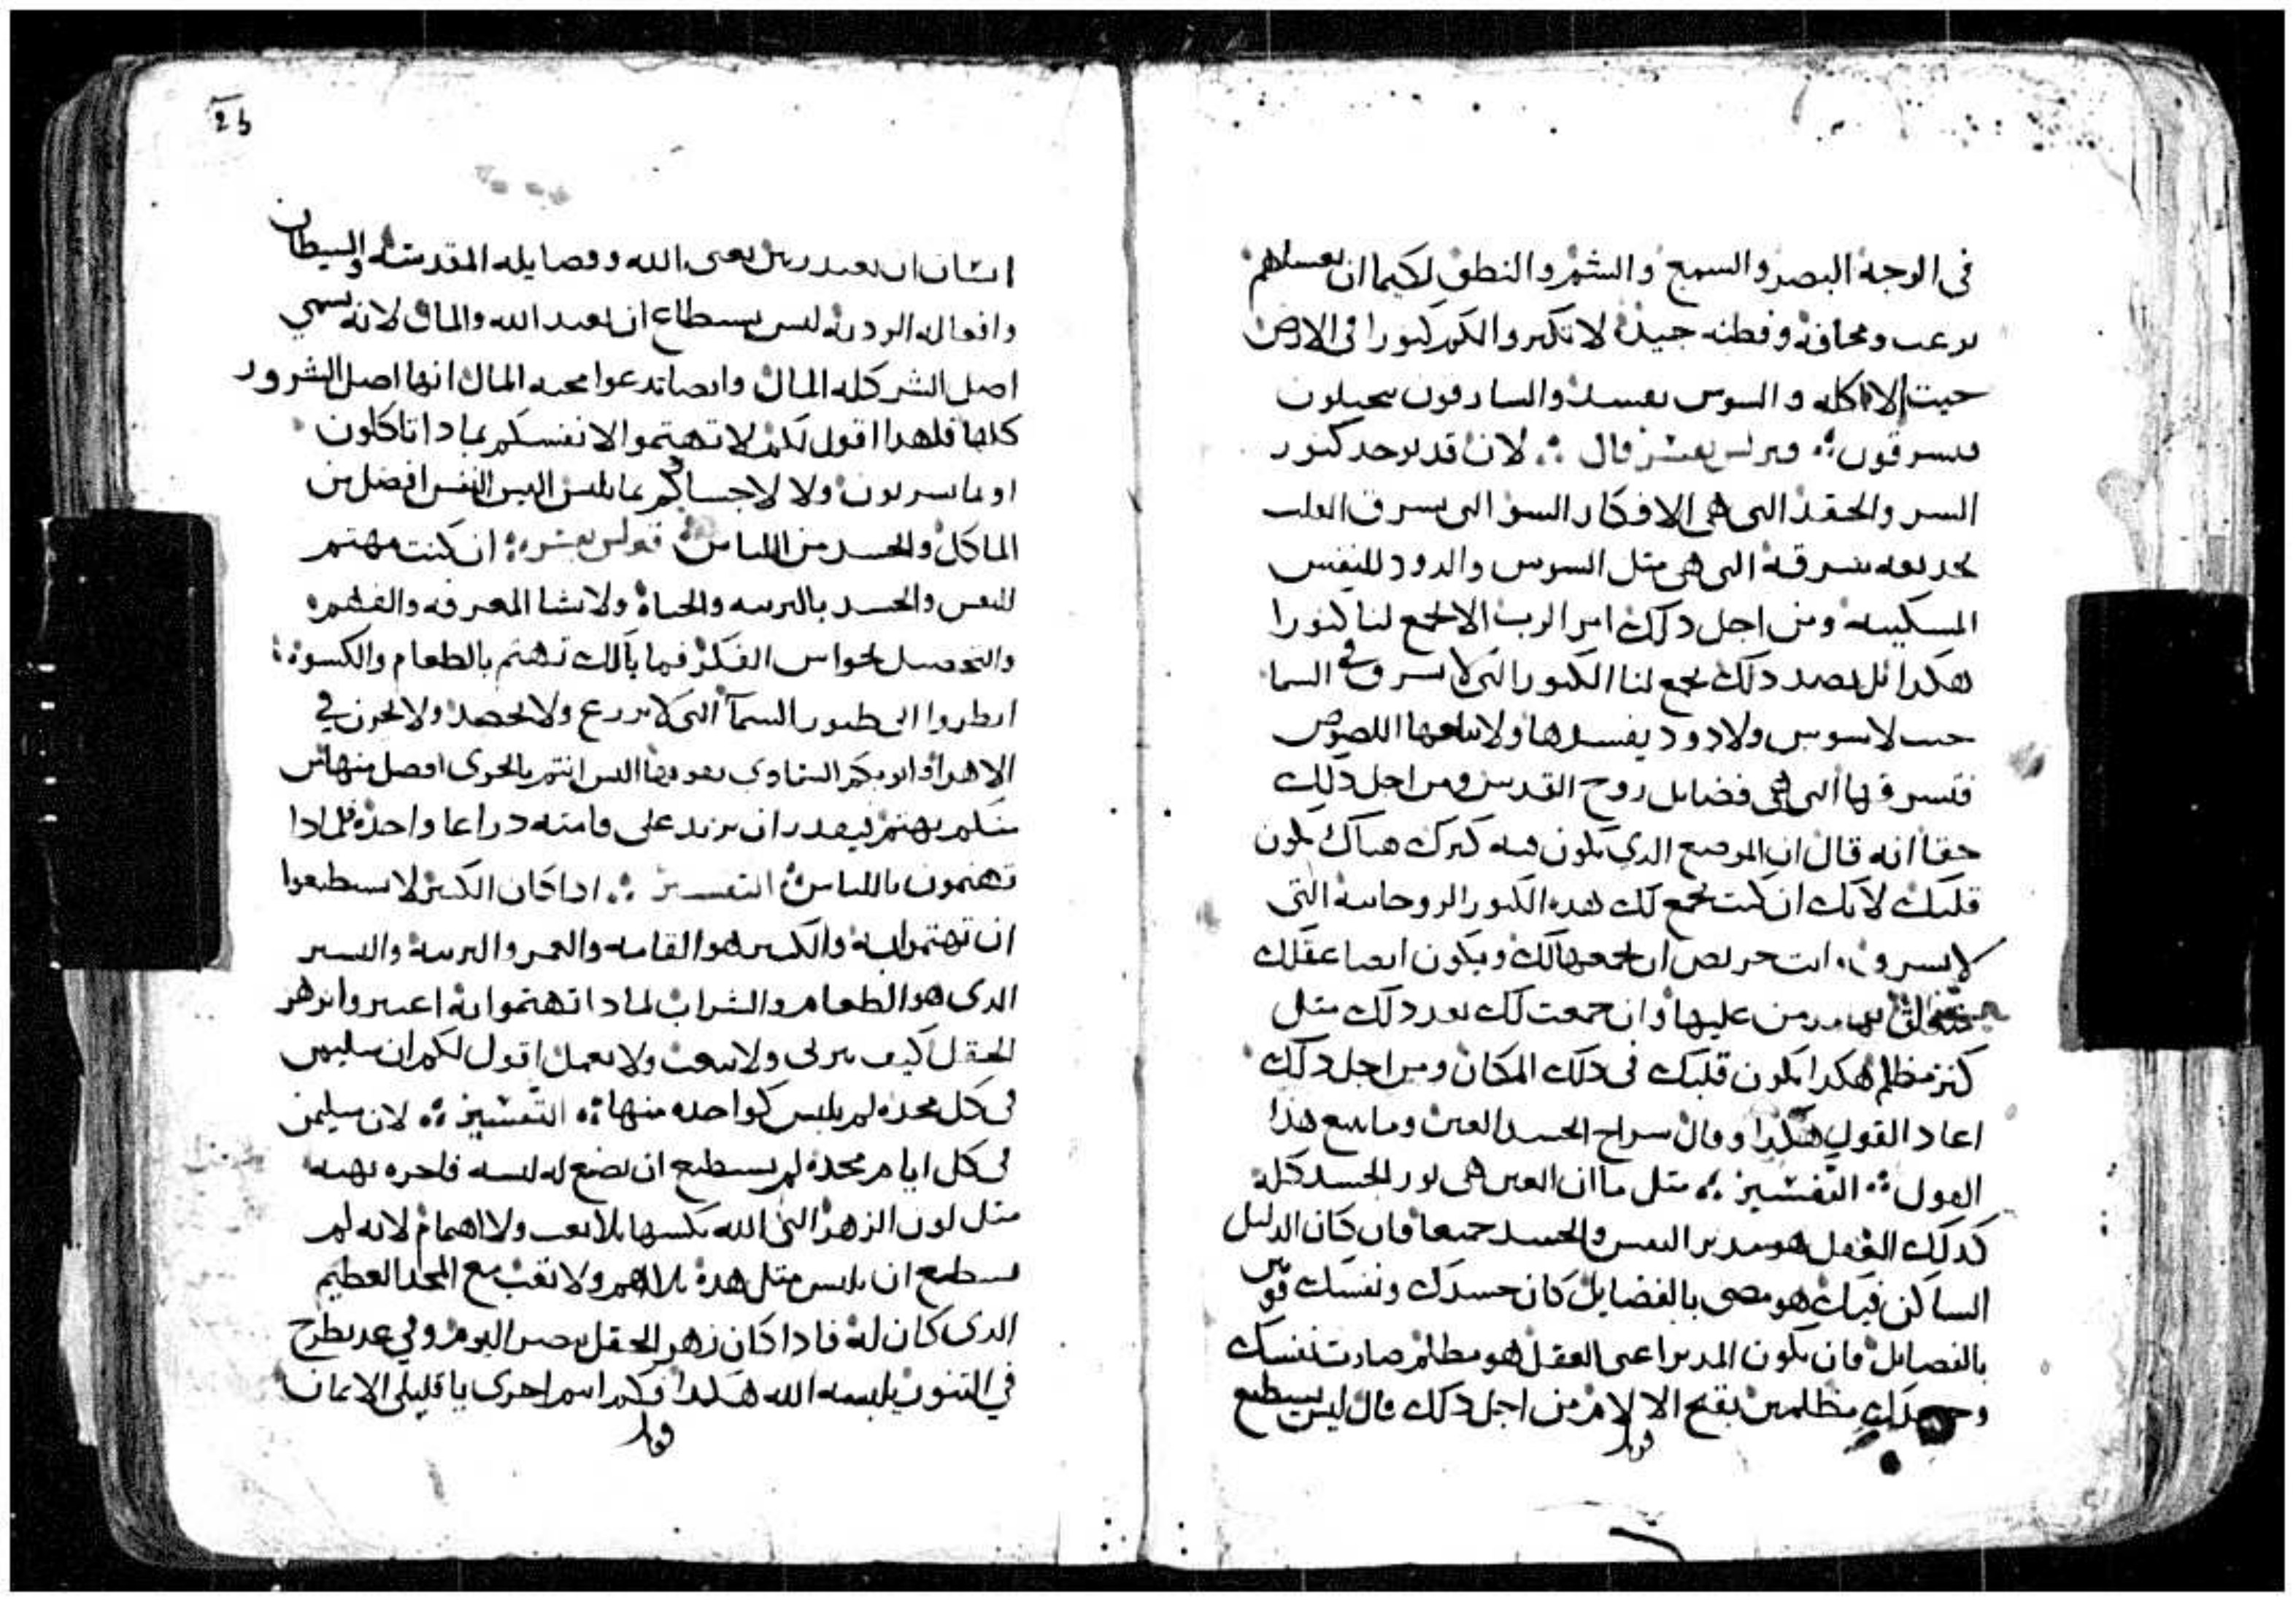 في الوجه البصر والسمع والشم والنطق لكيما ان نغسلهم
برعب ومخافة وفطنه جيدة لا تكنزوا لكم كنوزا في الارض
حيت الاكله والسوس يفسد والسارقون يتحيلون
فيسرقون لان قد يوجد كنوز
السر والحقد التي هي الافكار السو التي تسرق القلب
بخديعه التي هي متل السوس والدود للنفس
المسكينه ومن اجل دلك امر الرب الا نجمع لنا كنوزا
هكدا بل بضد دلك نجمع لنا الكنوز التي لا تسرق في السما
حيت لا سوس ولا دود يفسدها ولا اللصوص
فتسرقها التي هي فضايل روح القدس ومن اجل دلك
حقا انه قال ان الموضع الدي يكون فيه كنزك هناك يكون
قلبك لانك ان كنت تجمع لك هده الكنوز الروحانيه التي
لا تسرق انت حريص ان تجمعها لك ويكون ايضا عقلك
عليها وان جمعت لك بعد دلك متل
كنز مظلم هكدا يكون قلبك في دلك المكان ومن اجل دلك
اعاد القول هكدا وقال سراج الجسد العين وما يتبع هدا
القول التفسير متل ما ان العين هي نور الجسد كله
كدلك العقل هو مدبر النفس والجسد جميعا فان كان الدليل
الساكن فيك هو مضي بالفضايل كان جسدك ونفسك
بالفضايل فان يكون المدبر اعني العقل هو مظلم صارت نفسك
وجسدك مظلمين بقبح الالام من اجل دلك قال ليس يستطيع
انسان ان يعبد ربين يعني الله وفضايله المقدسة والشيطان
وافعاله الرديه ليس يستطاع ان يعبد الله والمال لانه يسمي
اصل الشر كله المال وايضا تدعوا محبه المال انها اصل الشرور
كلها فلهدا اقول لكم لا تهتموا لانفسكم بمادا تاكلون
او بما تشربون ولا لاجسادكم بما تلبس اليس النفس افضل من
الماكل والجسد من اللباس ان كنت مهتم
للنفس والجسد بالتربيه والحياة ولا تشا المعرفه والفهم
والتحصيل لحواس الفكر فما بالك تهتم بالطعام والكسوة
انظروا الى طيور السماء التي لا تزرع ولا تحصد ولا تخزن في
الاهراء وابوكم السماوي يقوتها اليس انتم بالحري افضل منها من
منكم يهتم فيقدر ان يزيد على قامته دراعا واحدة فلمادا
تهتمون باللباس التفسير ادا كان الكبير لا تستطيعوا
ان تهتموا به والكبير هو القامه والعمر والتربية واليسير
الدي هو الطعام والشراب لمادا تهتموا به اعتبروا بزهر
الحقل كيف يربى ولا يتعب ولا يعمل اقول لكم ان سليمن
في كل مجده لم يلبس كواحده منها التفسير لان سليمن
في كل ايام مجده لم يستطيع ان يصنع له لبسه فاخره بهيه
متل لون الزهر التي الله يكسيها بلا تعب ولا اهتمام لانه لم
يستطيع ان يلبس متل هده بلا هم ولا تعب مع المجد العظيم
الدي كان له فادا كان زهر الحقل اليوم وفي غد يطرح
في التنور يلبسه الله هكدا فكم انتم احرى يا قليلي الايمان